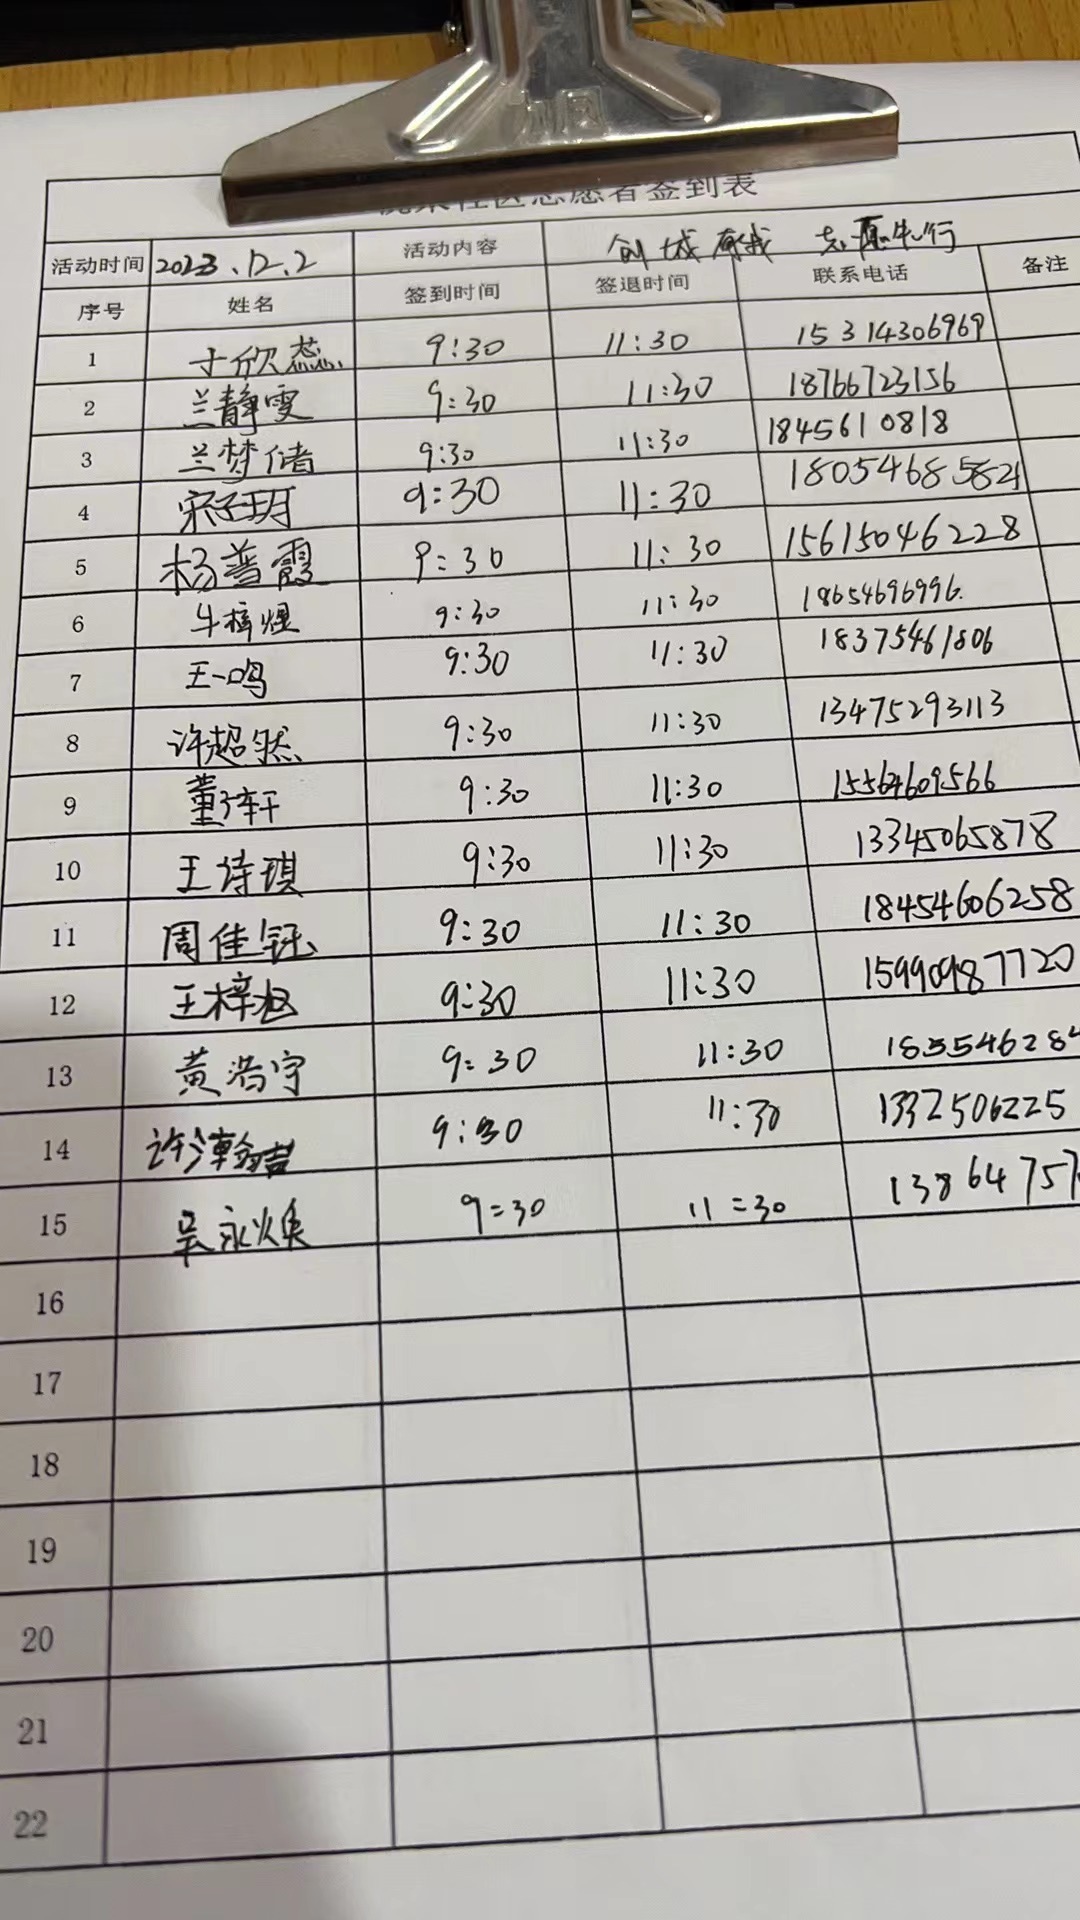 社区志愿者签到表
活动时间 2023.12.2 活动内容 创城有我 志愿先行
序号 姓名 签到时间 签退时间 联系电话 备注
1 于欣蕊 9:30 11:30 15314306969
2 兰静雯 9:30 11:30 18766723156
3 兰梦储 9:30 11:30 1845610818
4 宋子玥 9:30 11:30 18054685821
5 杨普霞 9:30 11:30 15615046228
6 牛梓煜 9:30 11:30 18654696996.
7 王一鸣 9:30 11:30 18375461806
8 许超然 9:30 11:30 13475293113
9 董子轩 9:30 11:30 15564609566
10 王诗琪 9:30 11:30 13345065878
11 周佳钰 9:30 11:30 18454606258
12 王梓 9:30 11:30 15990987720
13 黄浩宇 9:30 11:30 185546284
14 许瀚喆 9:30 11:30 1332506225
15 吴永焕 9:30 11:30 13864757
16
17
18
19
20
21
22